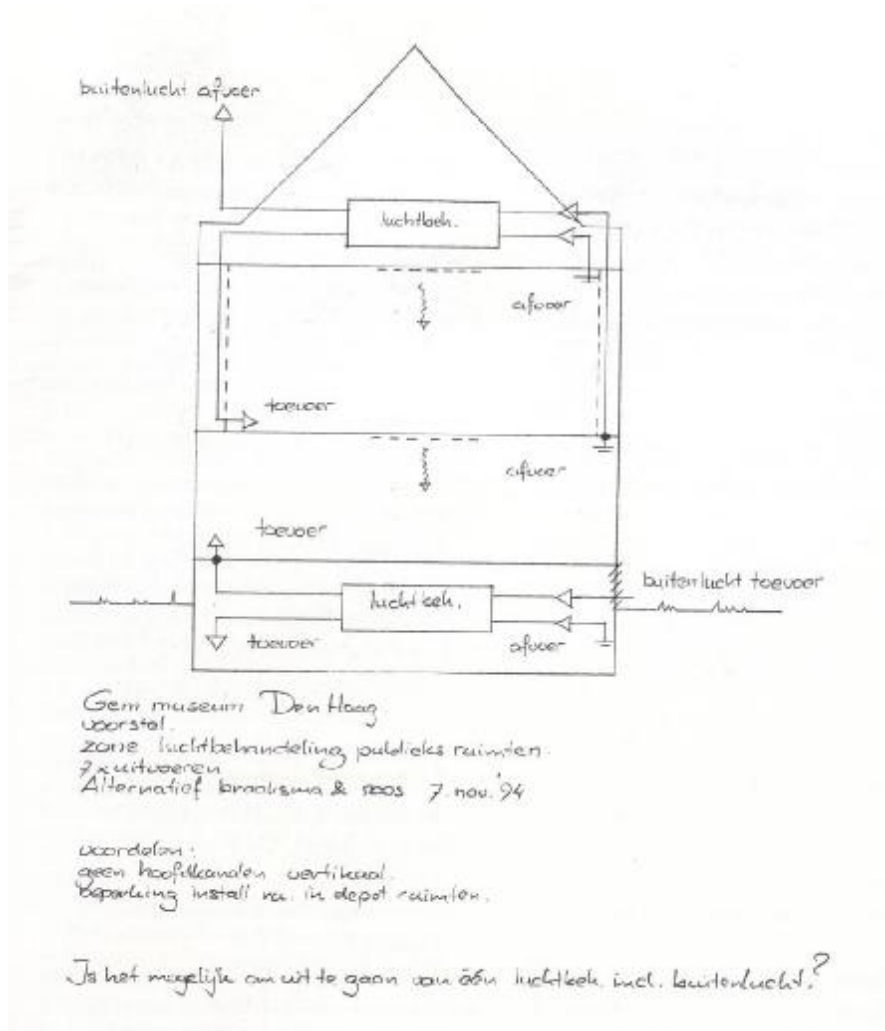 buitenlucht afvoer
luchtbeh.
afvoer
toevoer
afvoer
toevoer
buitenlucht toevoer
luchtbeh.
toevoer
afvoer
Gem museum Den Haag
voorstel.
zone luchtbehandeling publieks ruimten.
7x uitvoeren
Alternatief braaksma & roos 7. nov. '94
voordelen:
geen hoofdkanalen vertikaal.
beperking install in depot ruimten.
Is het mogelijk om uit te gaan van één luchtbeh. incl. buitenlucht?